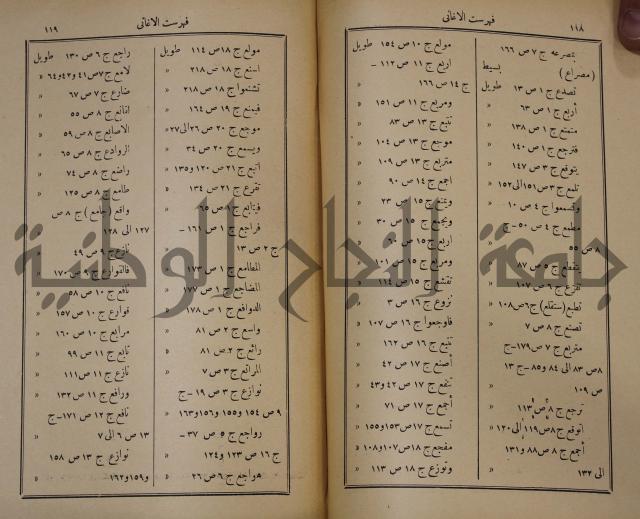 ١١٨ فهرست الاغانى
بمصرعه ج ٧ ص ١٦٦
(مصراع) بسيط
تصدع ج ١ ص ١٣ طويل
أربع ج ١ ص ٦٣ »
متمنع ج ١ ص ١٣٨ »
فترجع ج ١ ص ١٤٠ »
يتوقع ج ٣ ص ١٤٧ »
تلمع ج ٣ ص ١٥١ الى ١٥٢ »
وتسمعوا ج ٤ ص ١٠ »
مطمع ج ٤ ص ٥٠ - ج
٨ ص ٥٥ »
يتقطع ج ٥ ص ٨٧ »
تفزع ج ٦ ص ١٠٧ »
تطبع (ستقلع) ج ٦ ص ١٠٨ »
تصنع ج ٨ ص ٧ »
متربع ج ٧ ص ١٧٩ - ج
٨ ص ٨٣ الى ٨٤ و ٨٥ - ج ١٣
ص ١٠٩ »
ترجع ج ٨ ص ١١٣ »
اتوقع ج ٨ ص ١١٩ الى ١٢٠ »
أجمع ج ٨ ص ٨٨ و ١٣١
الى ١٣٢ »
مولع ج ١٠ ص ١٥٤ طويل
اربع ج ١١ ص ١١٢ -
ج ١٤ ص ١٦٦ »
ومربع ج ١١ ص ١٥١ »
تتبع ج ١٣ ص ٨٣ »
موجع ج ١٣ ص ١٠٤ »
متربع ج ١٣ ص ١٠٩ »
اجمع ج ١٤ ص ٩٠ »
ويمنع ج ١٥ ص ٢٣ »
ويجمع ج ١٥ ص ٣٠ »
اربع ج ١٥ ص ٦٠ »
ومربع ج ١٥ ص ١٠١ »
تقشع ج ١٥ ص ١١٤ »
نزوع ج ١٦ ص ٣ »
فاوجعوا ج ١٦ ص ١٠٧ »
تتبع ج ١٦ ص ١٦٢ »
أصنع ج ١٧ ص ٤٢ »
تنفع ج ١٧ ص ٤٢ و ٤٣ »
أجمع ج ١٧ ص ٧١ »
تسمع ج ١٧ ص ١٥٣ و ١٥٥ »
مفجع ج ١٨ ص ١٠٧ و ١٠٨ »
وتوزع ج ١٨ ص ١١٣ »
فهرست الاغانى ١١٩
مولع ج ١٨ ص ١١٤ طويل
اصنع ج ١٨ ص ٢١٨ »
تشنموا ج ١٨ ص ٢١٨ »
فيمنع ج ١٩ ص ١٦٤ »
موجع ج ٢٠ ص ٢٦ الى ٢٧ »
ويسمع ج ٢٠ ص ٣٤ »
اتبع ج ٢١ ص ١٢٠ و ١٣٥ »
تقرع ج ٢١ ص ١٣٤ »
فيتابع ج ٨ ص ٦٥ »
فراجع ج ١ ص ١٦١ -
ج ٢ ص ١٣ »
المطامع ج ١ ص ١٧٣ »
المضاجع ج ١ ص ١٧٧ »
الدوافع ج ١ ص ١٧٨ »
واسع ج ٢ ص ٨١ »
رائع ج ٢ ص ٨١ »
المراتع ج ٣ ص ٧ »
نوازع ج ٣ ص ١٩ - ج
٩ ص ١٥٤ و ١٥٥ و ١٥٦ و ١٦٣ »
رواجع ج ٥ ص ٣٧ -
ج ١٦ ص ١٢٣ و ١٢٤ »
هواجع ج ٦ ص ٢٦ »
راجع ج ٦ ص ١٣٠ طويل
لامع ج ٧ ص ٤١ و ٤٢ و ٦٤ »
ضارع ج ٧ ص ٦٧ »
اناتع ج ٨ ص ٥٥ »
الاصابع ج ٨ ص ٥٩ »
الروادع ج ٨ ص ٦٥ »
راضع ج ٨ ص ٧٤ »
طامع ج ٨ ص ١٢٥ »
واقع (جامع) ج ٨ ص
١٢٧ الى ١٢٨ »
نازع ج ٩ ص ٤٩ »
فالفوارع ج ٩ ص ١٧٠ »
نافع ج ١٠ ص ٥٨ »
قوارع ج ١٠ ص ١٥٧ »
مرابع ج ١٠ ص ١٦٠ »
تابع ج ١١ ص ٩٩ »
نازع ج ١١ ص ١١١ »
ورافع ج ١١ ص ١٣٢ »
نافع ج ١٢ ص ١٧١ - ج
١٣ ص ٦ الى ٧ »
نوازع ج ١٣ ص ١٥٨
و ١٥٩ و ١٦٢ »
جامعة النجاح الوطنية